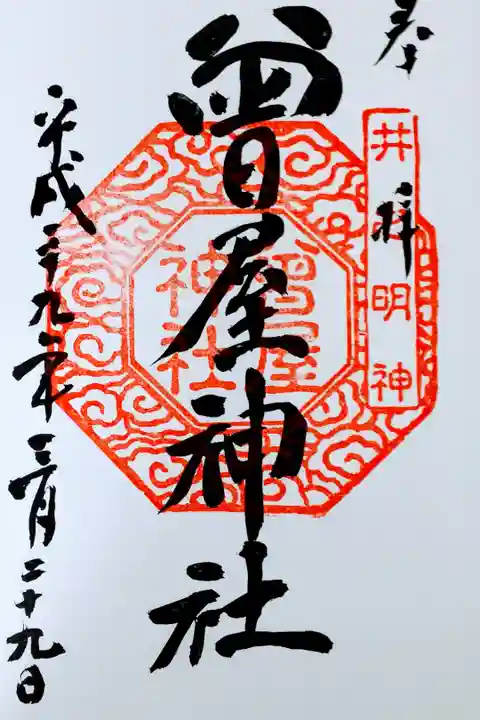 奉拝
井明神
曽屋神社
曽屋
神社
平成二十九年三月二十九日